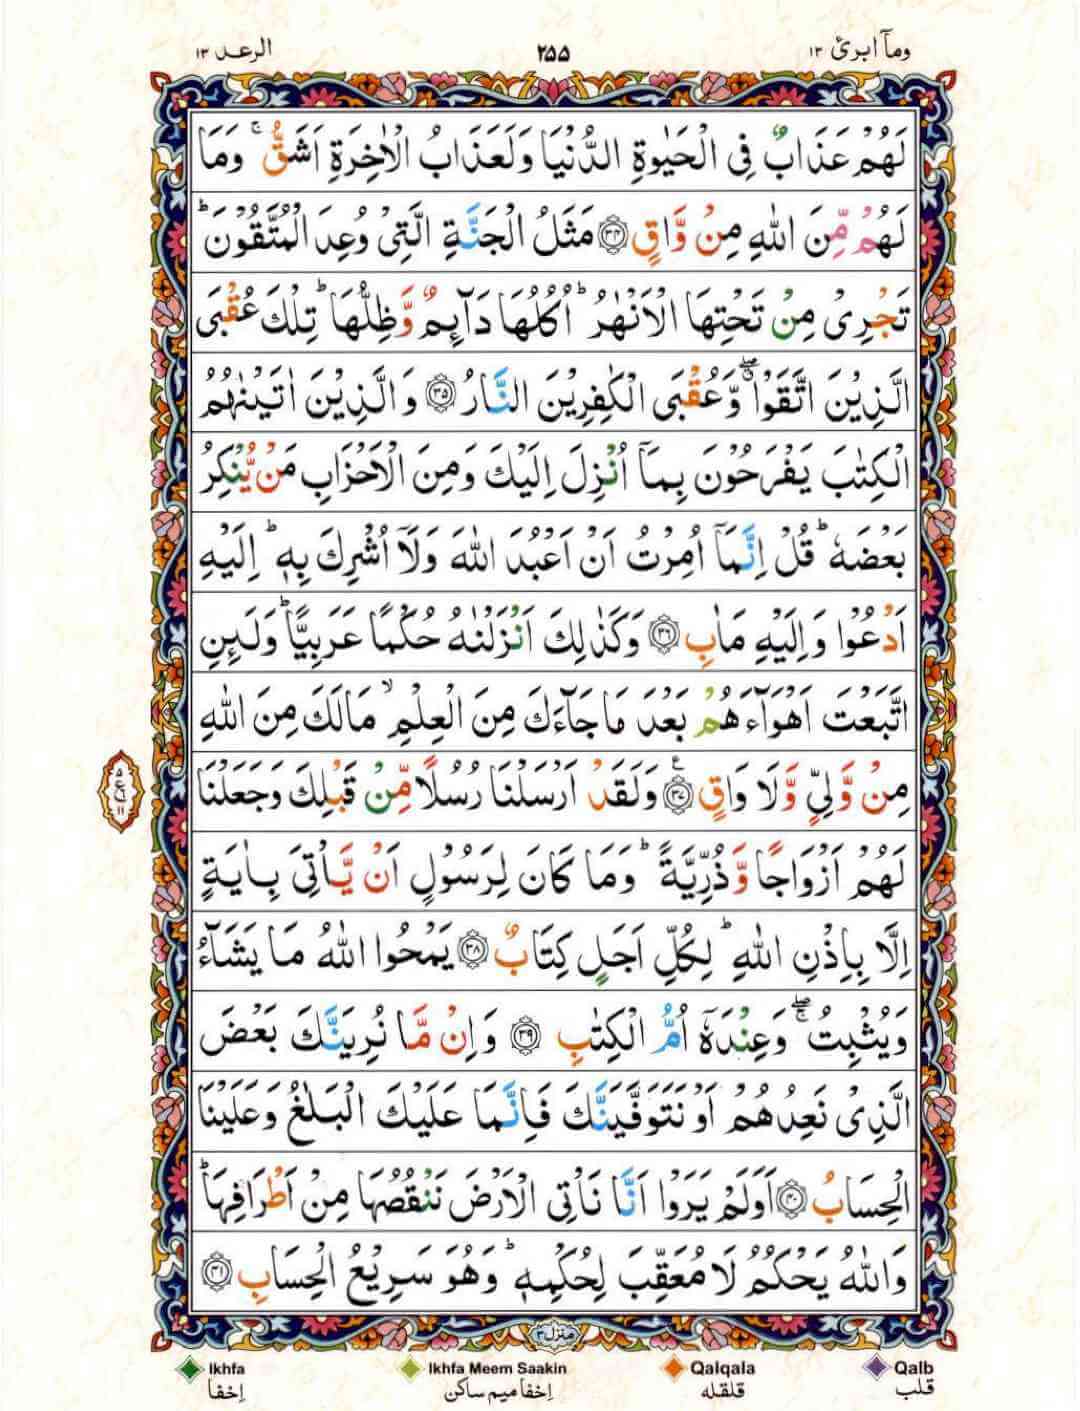 ومآ ابرئ ١٣ ٢٥٥ الرعد ١٣
لَهُمْ عَذَابٌ فِى الْحَيٰوةِ الدُّنْيَا وَلَعَذَابُ الْاٰخِرَةِ اَشَقُّ ۚ وَمَا
لَهُمْ مِّنَ اللّٰهِ مِنْ وَّاقٍ ﴿۳۴﴾ مَثَلُ الْجَنَّةِ الَّتِىْ وُعِدَ الْمُتَّقُوْنَ ؕ
تَجْرِىْ مِنْ تَحْتِهَا الْاَنْهٰرُ ؕ اُكُلُهَا دَآئِمٌ وَّظِلُّهَا ؕ تِلْكَ عُقْبَى
الَّذِيْنَ اتَّقَوْا ۖۗ وَّعُقْبَى الْكٰفِرِيْنَ النَّارُ ﴿۳۵﴾ وَالَّذِيْنَ اٰتَيْنٰهُمُ
الْكِتٰبَ يَفْرَحُوْنَ بِمَاۤ اُنْزِلَ اِلَيْكَ وَمِنَ الْاَحْزَابِ مَنْ يُّنْكِرُ
بَعْضَهٗ ؕ قُلْ اِنَّمَاۤ اُمِرْتُ اَنْ اَعْبُدَ اللّٰهَ وَلَاۤ اُشْرِكَ بِهٖ ؕ اِلَيْهِ
اَدْعُوْا وَاِلَيْهِ مَاٰبِ ﴿۳۶﴾ وَكَذٰلِكَ اَنْزَلْنٰهُ حُكْمًا عَرَبِيًّا ؕ وَلَئِنِ
اتَّبَعْتَ اَهْوَآءَهُمْ بَعْدَ مَا جَآءَكَ مِنَ الْعِلْمِ ۙ مَالَكَ مِنَ اللّٰهِ
مِنْ وَّلِىٍّ وَّلَا وَاقٍ ﴿۳۷﴾ ع وَلَقَدْ اَرْسَلْنَا رُسُلًا مِّنْ قَبْلِكَ وَجَعَلْنَا
۵ ع ۱۱
لَهُمْ اَزْوَاجًا وَّذُرِّيَّةً ؕ وَمَا كَانَ لِرَسُوْلٍ اَنْ يَّاْتِىَ بِاٰيَةٍ
اِلَّا بِاِذْنِ اللّٰهِ ؕ لِكُلِّ اَجَلٍ كِتَابٌ ﴿۳۸﴾ يَمْحُوا اللّٰهُ مَا يَشَآءُ
وَيُثْبِتُ ۖۚ وَعِنْدَهٗۤ اُمُّ الْكِتٰبِ ﴿۳۹﴾ وَاِنْ مَّا نُرِيَنَّكَ بَعْضَ
الَّذِىْ نَعِدُهُمْ اَوْ نَتَوَفَّيَنَّكَ فَاِنَّمَا عَلَيْكَ الْبَلٰغُ وَعَلَيْنَا
الْحِسَابُ ﴿۴۰﴾ اَوَلَمْ يَرَوْا اَنَّا نَاْتِى الْاَرْضَ نَنْقُصُهَا مِنْ اَطْرَافِهَا ؕ
وَاللّٰهُ يَحْكُمُ لَا مُعَقِّبَ لِحُكْمِهٖ ؕ وَهُوَ سَرِيْعُ الْحِسَابِ ﴿۴۱﴾
منزل ۳
Ikhfa Ikhfa Meem Saakin Qalqala Qalb
اِخفا اِخفا میم ساکن قلقله قلب